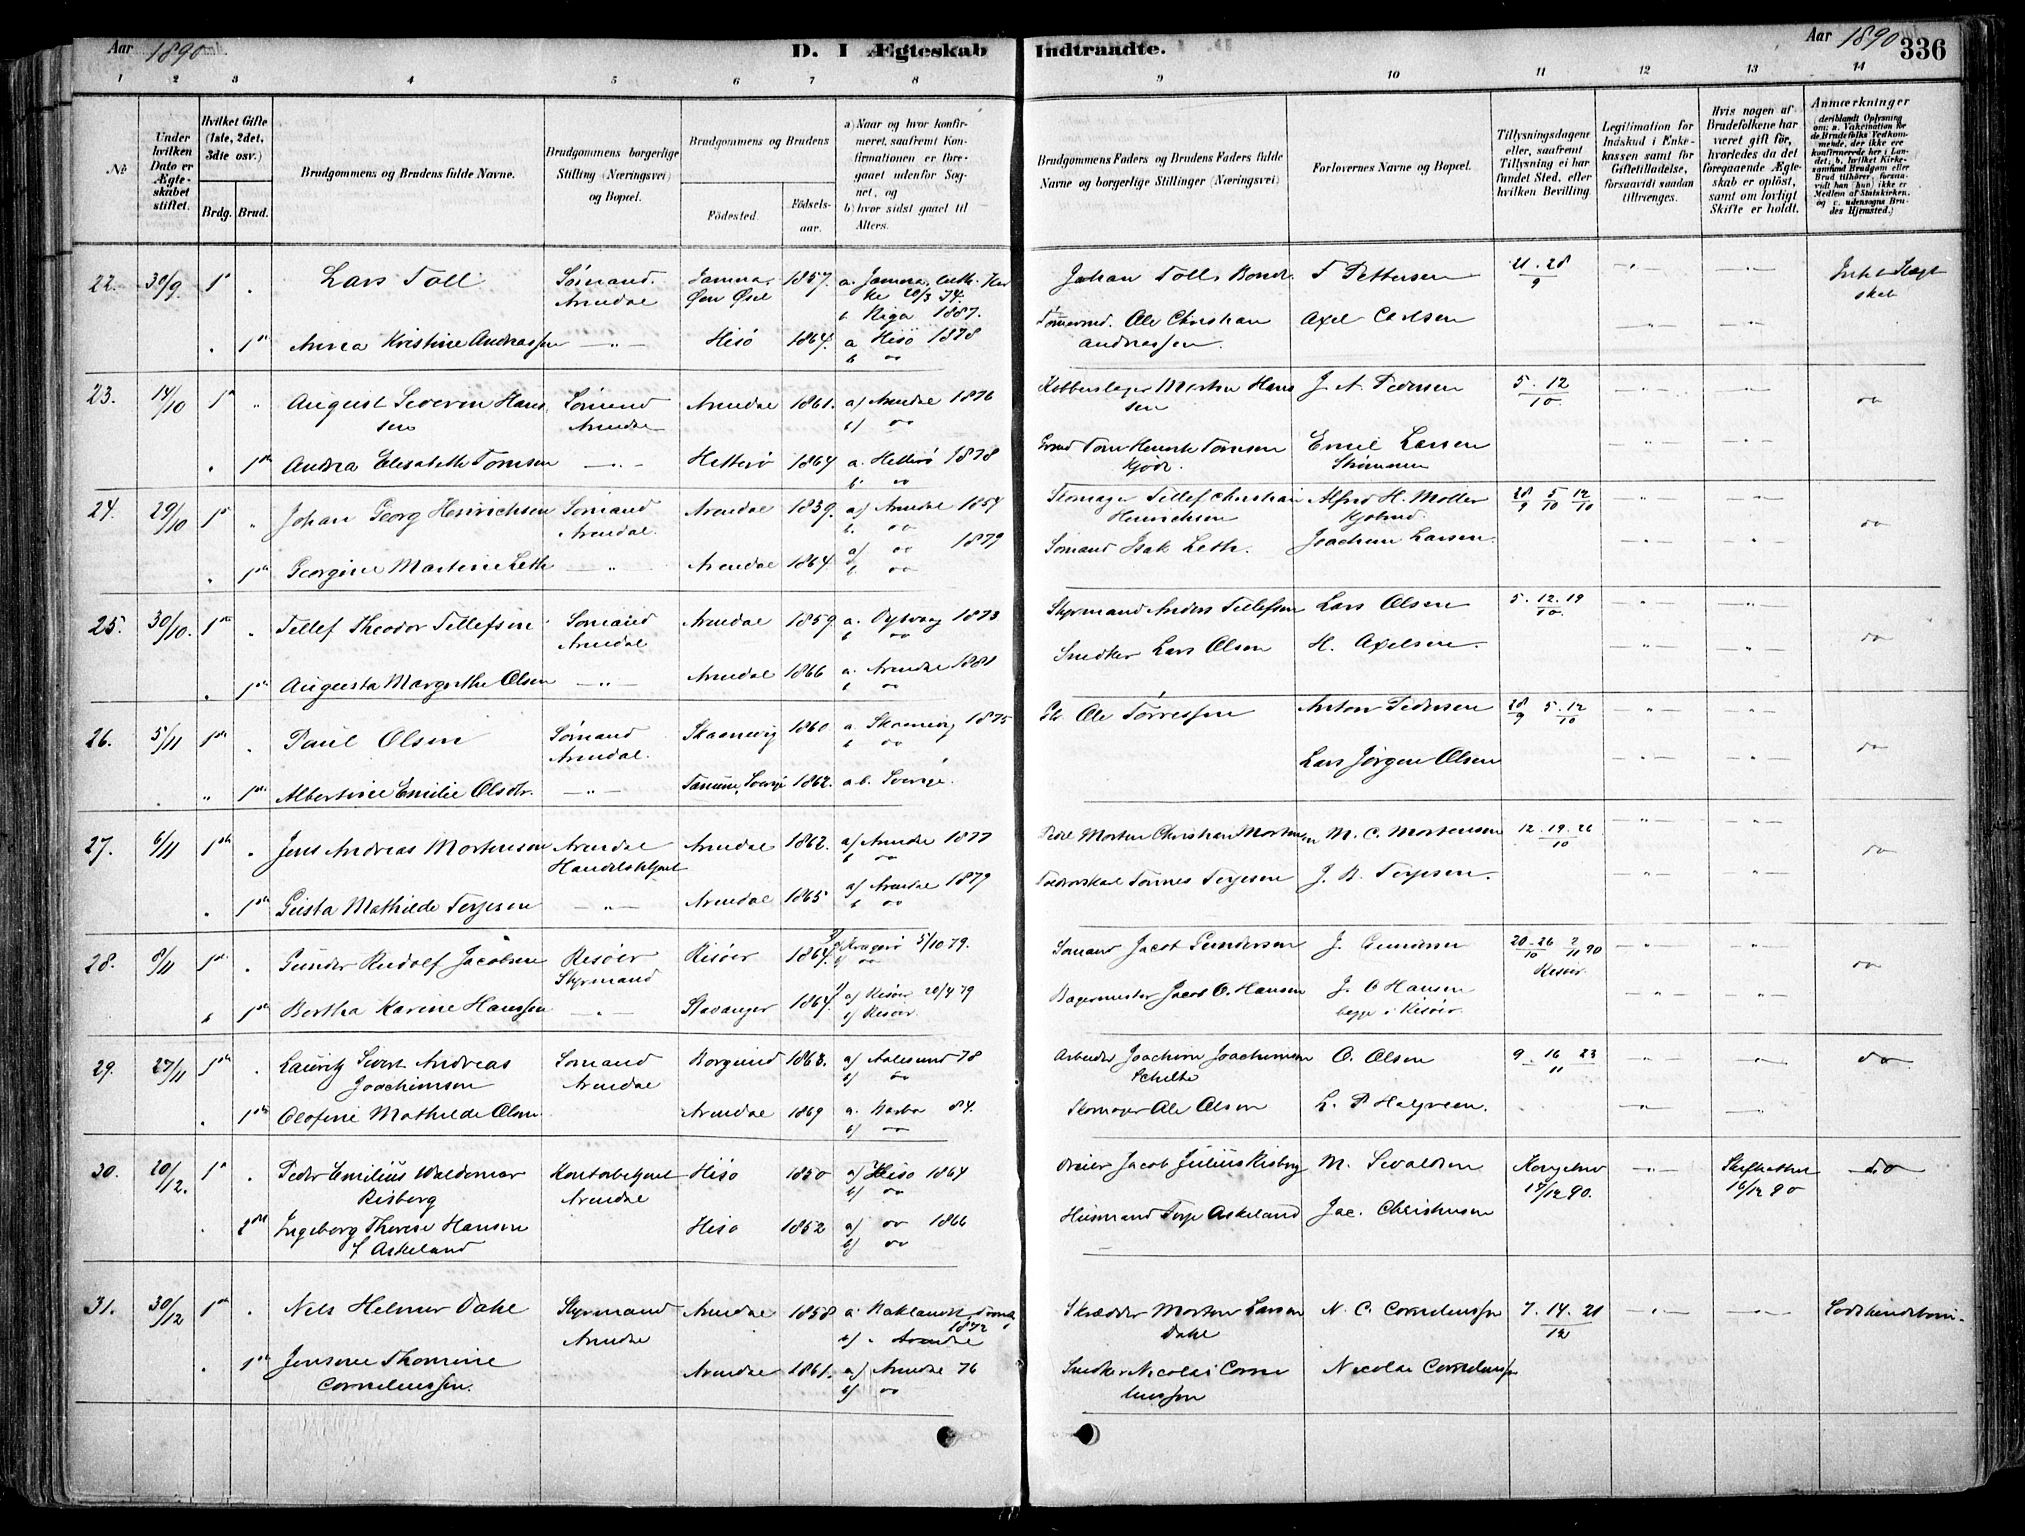 Aar 1890
D. I Ægteskab Indtraadte.
Aar 1890
336
1 2 3 4 5 6 7 8 9 10 11 12 13 14
No
Under hvilken Dato er Ægteskabet stiftet.
Hvilket Gifte (1ste, 2det, 3die osv.)
Brdg. Brud.
Brudgommens og Brudens fulde Navne.
Brudgommens borgerlige Stilling (Næringsvei) og Bopæl.
Brudgommens og Brudens
Fødested.
Fødselsaar.
a) Naar og hvor konfirmeret, saafremt Konfirmationen er foregaaet udenfor Sognet, og
b) hvor sidst gaaet til Alters.
Brudgommens Faders og Brudens Faders fulde Navne og borgerlige Stillinger (Næringsvei)
Forlovernes Navne og Bopæl.
Tillysningsdagene eller, saafremt Tillysning ei har fundet Sted, efter hvilken Bevilling.
Legitimation for Indskud i Enkekassen samt for Giftetilladelse, forsaavidt saadan tiltrænges.
Hvis nogen af Brudefolkene har været gift før, hvorledes da det foregaaende Ægteskab er opløst, samt om lovligt Skifte er holdt.
Anmærkninger (deriblandt Oplysning om: a. Vakcination for de Brudefolks Vedkommende, der ikke ere konfirmerede her i Landet; b. hvilket Kirkesamfund Brudgom eller Brud tilhører, forsaavidt han (hun) ikke er Medlem af Statskirken, og c. udensogns Brudes Hjemsted.)
22. 30/9 1ste Lars Toll Sømand. Arendal 1857. Johan Toll, Bonde T Pettersen 21. 28/9
b Riga 1887.
1ste Anna Kristine Andreassen Hisø 1864. a Hisø 1878 b do Tømmermd. Ole Christian Andreassen. Axel Carlsen
23. 14/10 1ste August Severin Hansen Sømand Arendal Arendal 1861. a) Arendal 1876 b) do Kobberslager Morten Hansen J. A. Pedersen 5. 12/10. do
1ste Andrea Elisabeth Tomsen Hitterø 1864 a. Hitterø 1878 b. do Emil Larsen Strømmen
24. 29/10 1ste Johan Georg Henrichsen Sømand Arendal. Arendal 1839. a) Arendal 1854 b. do Skomager Tellef Christian Henrichsen Alfred H. Møller 28/9 5/10 12/10 do
1ste Georgine Martine Leth Arendal 1864. a) do 1879 b. do Sømand Isak Leth. Joachim Larsen.
25. 30/10. 1ste Tellef Theodor Tellefsen Sømand Arendal Arendal 1859. a. Dypvaag 1873 b do Styrmand Anders Tellefsen Lars Olsen 5. 12. 19/10. do
1ste Augusta Margrethe Olsen Arendal 1866 a. Arendal 1881 b do Snedker Lars Olsen H. Axelsen.
26. 5/11 1ste Paul Olsen Sømand Arendal. Skaanevig 1860 a. Skaanevig 1875 b do Ole Tørressen Anton Pedersen 28/9 5. 12/10 do
1ste Albertine Emilie Olsdtr. Tanum, Sverige 1862. a b. Sverige. Lars Jørgen Olsen
27. 6/11 1ste Jens Andreas Mortensen Arendal Handelsbetjent Arendal 1862. a) Arendal 1877 b do Morten Christian Mortensen M. C. Mortensen 12. 19. 26/10 do
1ste Gusta Mathilde Terjesen Arendal 1865 a) Arendal 1879 b do Tønnes Terjesen J. B. Terjesen.
28. 8/11 1ste Gunder Rudolf Jacobsen Risøer Styrmand Risøer 1864. a) Kragerø 5/10 79. b) do Sømand Jacob Gundersen J. Gundersen 20. 26/10 2/11 90 Risøer do
1ste Bertha Karine Hanssen Stavanger 1864. a) Risøer 20/4 79 b) Risøer. Bagermester Jacob O. Hansen J. O Hansen begge i Risøer.
29. 27/11 1ste Lauritz Sivert Andreas Joachimsen Sømand Arendal Borgund 1863. a) Aalesund 78 b) do Arbeider Joachim Joachimsen Schelbe O. Olsen 9. 16 23/11 do
1ste Olofine Mathilde Olsen Arendal 1869 a. Barbo 84. b) do Skomager Ole Olsen
30. 20/12. 1ste Peder Emilius Waldemar Risberg Kontorbetjent Arendal Hisø 1850 a) Hisø 1864 b) do Jacob Julius Risberg M. Sivaldsen Kongebrev 17/12 90. Skifteattest 16/12 90 do
2det Ingeborg Therese Hansen f Askeland Hisø 1852 a) do 1866 b) do Husmand Terje Askeland Jac. Christensen
31. 30/12 1ste Nils Helmer Dahl Styrmand Arendal Arendal 1858 a. Baklandet 1872 b) Arendal Skrædder Morten Larsen Dahl N. C. Corneliussen 7. 14. 21/12
1ste Jensine Thomine Corneliussen. Arendal 1861. a) Arendal 76 b) do Snedker Nicolai Corneliussen Nicolai Corneliussen